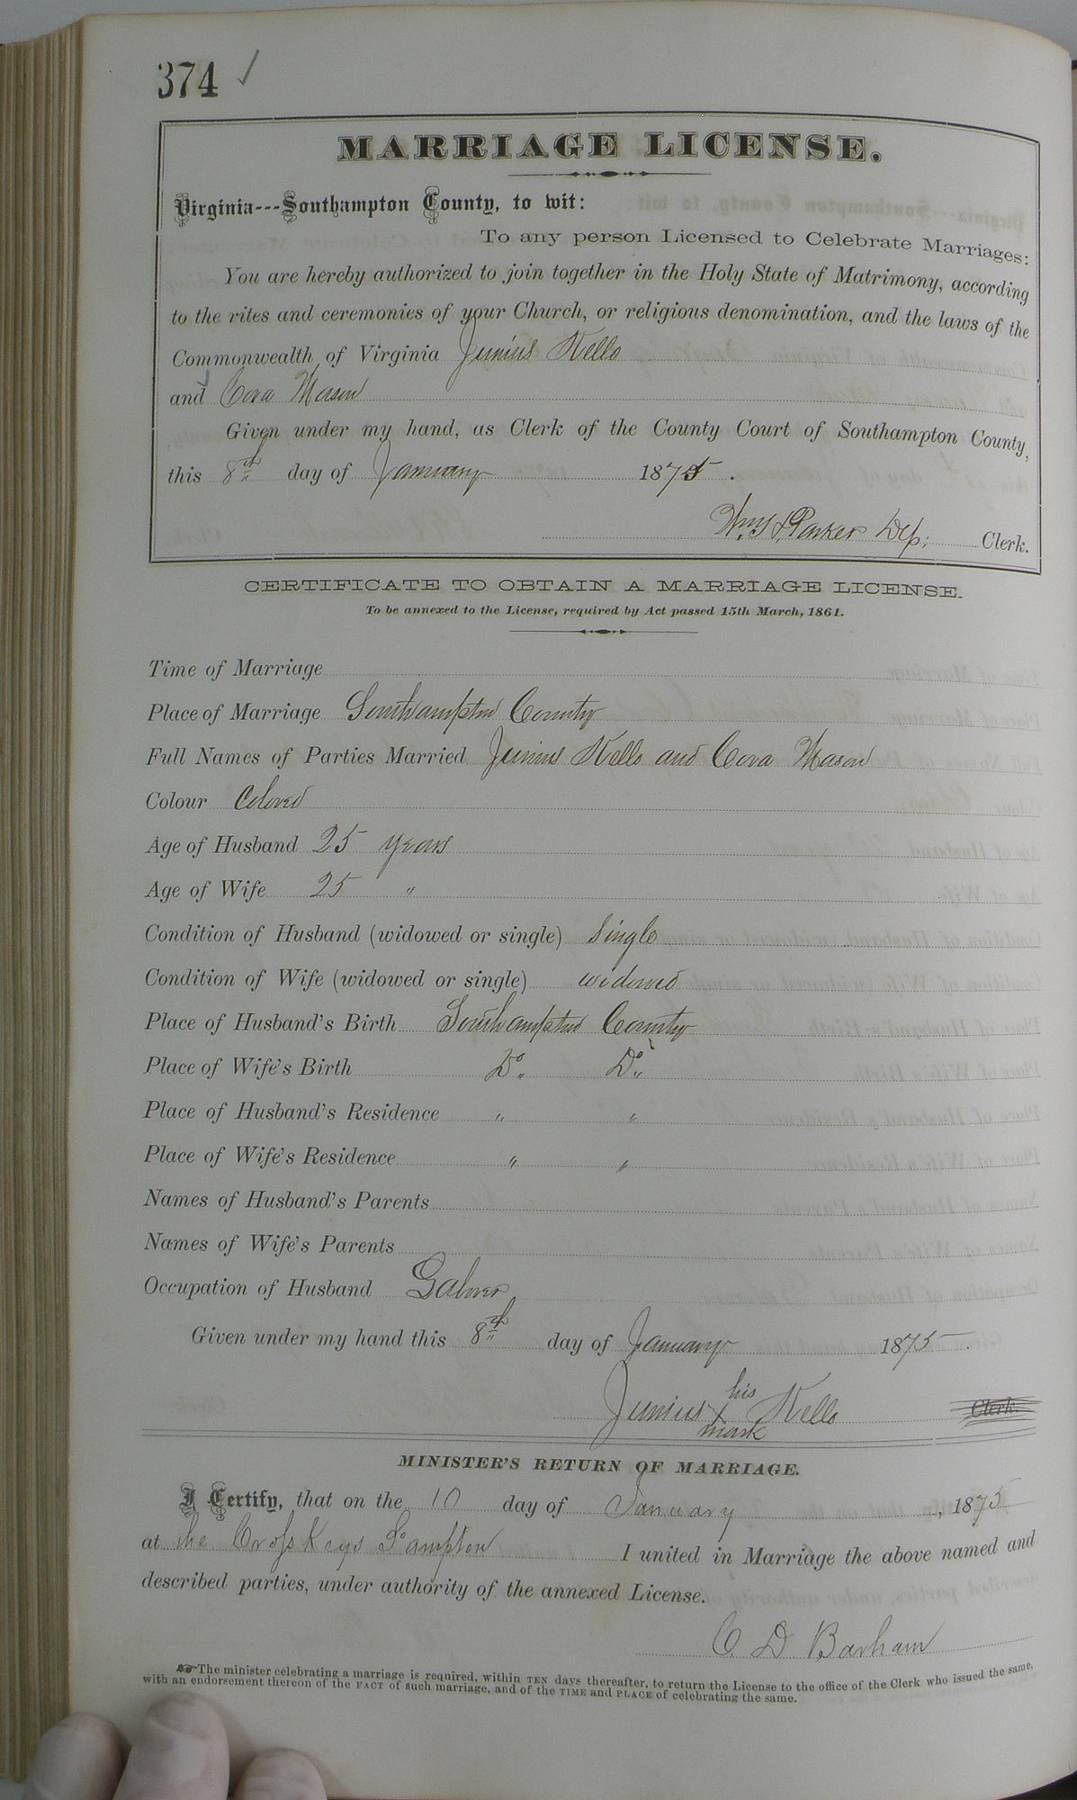 374 ✓
MARRIAGE LICENSE.
Virginia---Southampton County, to wit:
To any person Licensed to Celebrate Marriages:
You are hereby authorized to join together in the Holy State of Matrimony, according
to the rites and ceremonies of your Church, or religious denomination, and the laws of the
Commonwealth of Virginia Junius Kello
and Cora Mason
Given under my hand, as Clerk of the County Court of Southampton County,
this 8th day of January 1875.
Wm Parker Dep: Clerk.
CERTIFICATE TO OBTAIN A MARRIAGE LICENSE.
To be annexed to the License, required by Act passed 15th March, 1861.
Time of Marriage
Place of Marriage Southampton County
Full Names of Parties Married Junius Kello and Cora Mason
Colour Colored
Age of Husband 25 years
Age of Wife 25 "
Condition of Husband (widowed or single) Single
Condition of Wife (widowed or single) widowed
Place of Husband's Birth Southampton County
Place of Wife's Birth Do. Do.
Place of Husband's Residence " "
Place of Wife's Residence " "
Names of Husband's Parents
Names of Wife's Parents
Occupation of Husband Labover
Given under my hand this 8th day of January 1875.
his
Junius X Kello Clerk.
mark
MINISTER'S RETURN OF MARRIAGE.
I Certify, that on the 10 day of January, 1875
at the Cross Keys S'ampton I united in Marriage the above named and
described parties, under authority of the annexed License.
C. D Barham
The minister celebrating a marriage is required, within TEN days thereafter, to return the License to the office of the Clerk who issued the same,
with an endorsement thereon of the FACT of such marriage, and of the TIME and PLACE of celebrating the same.